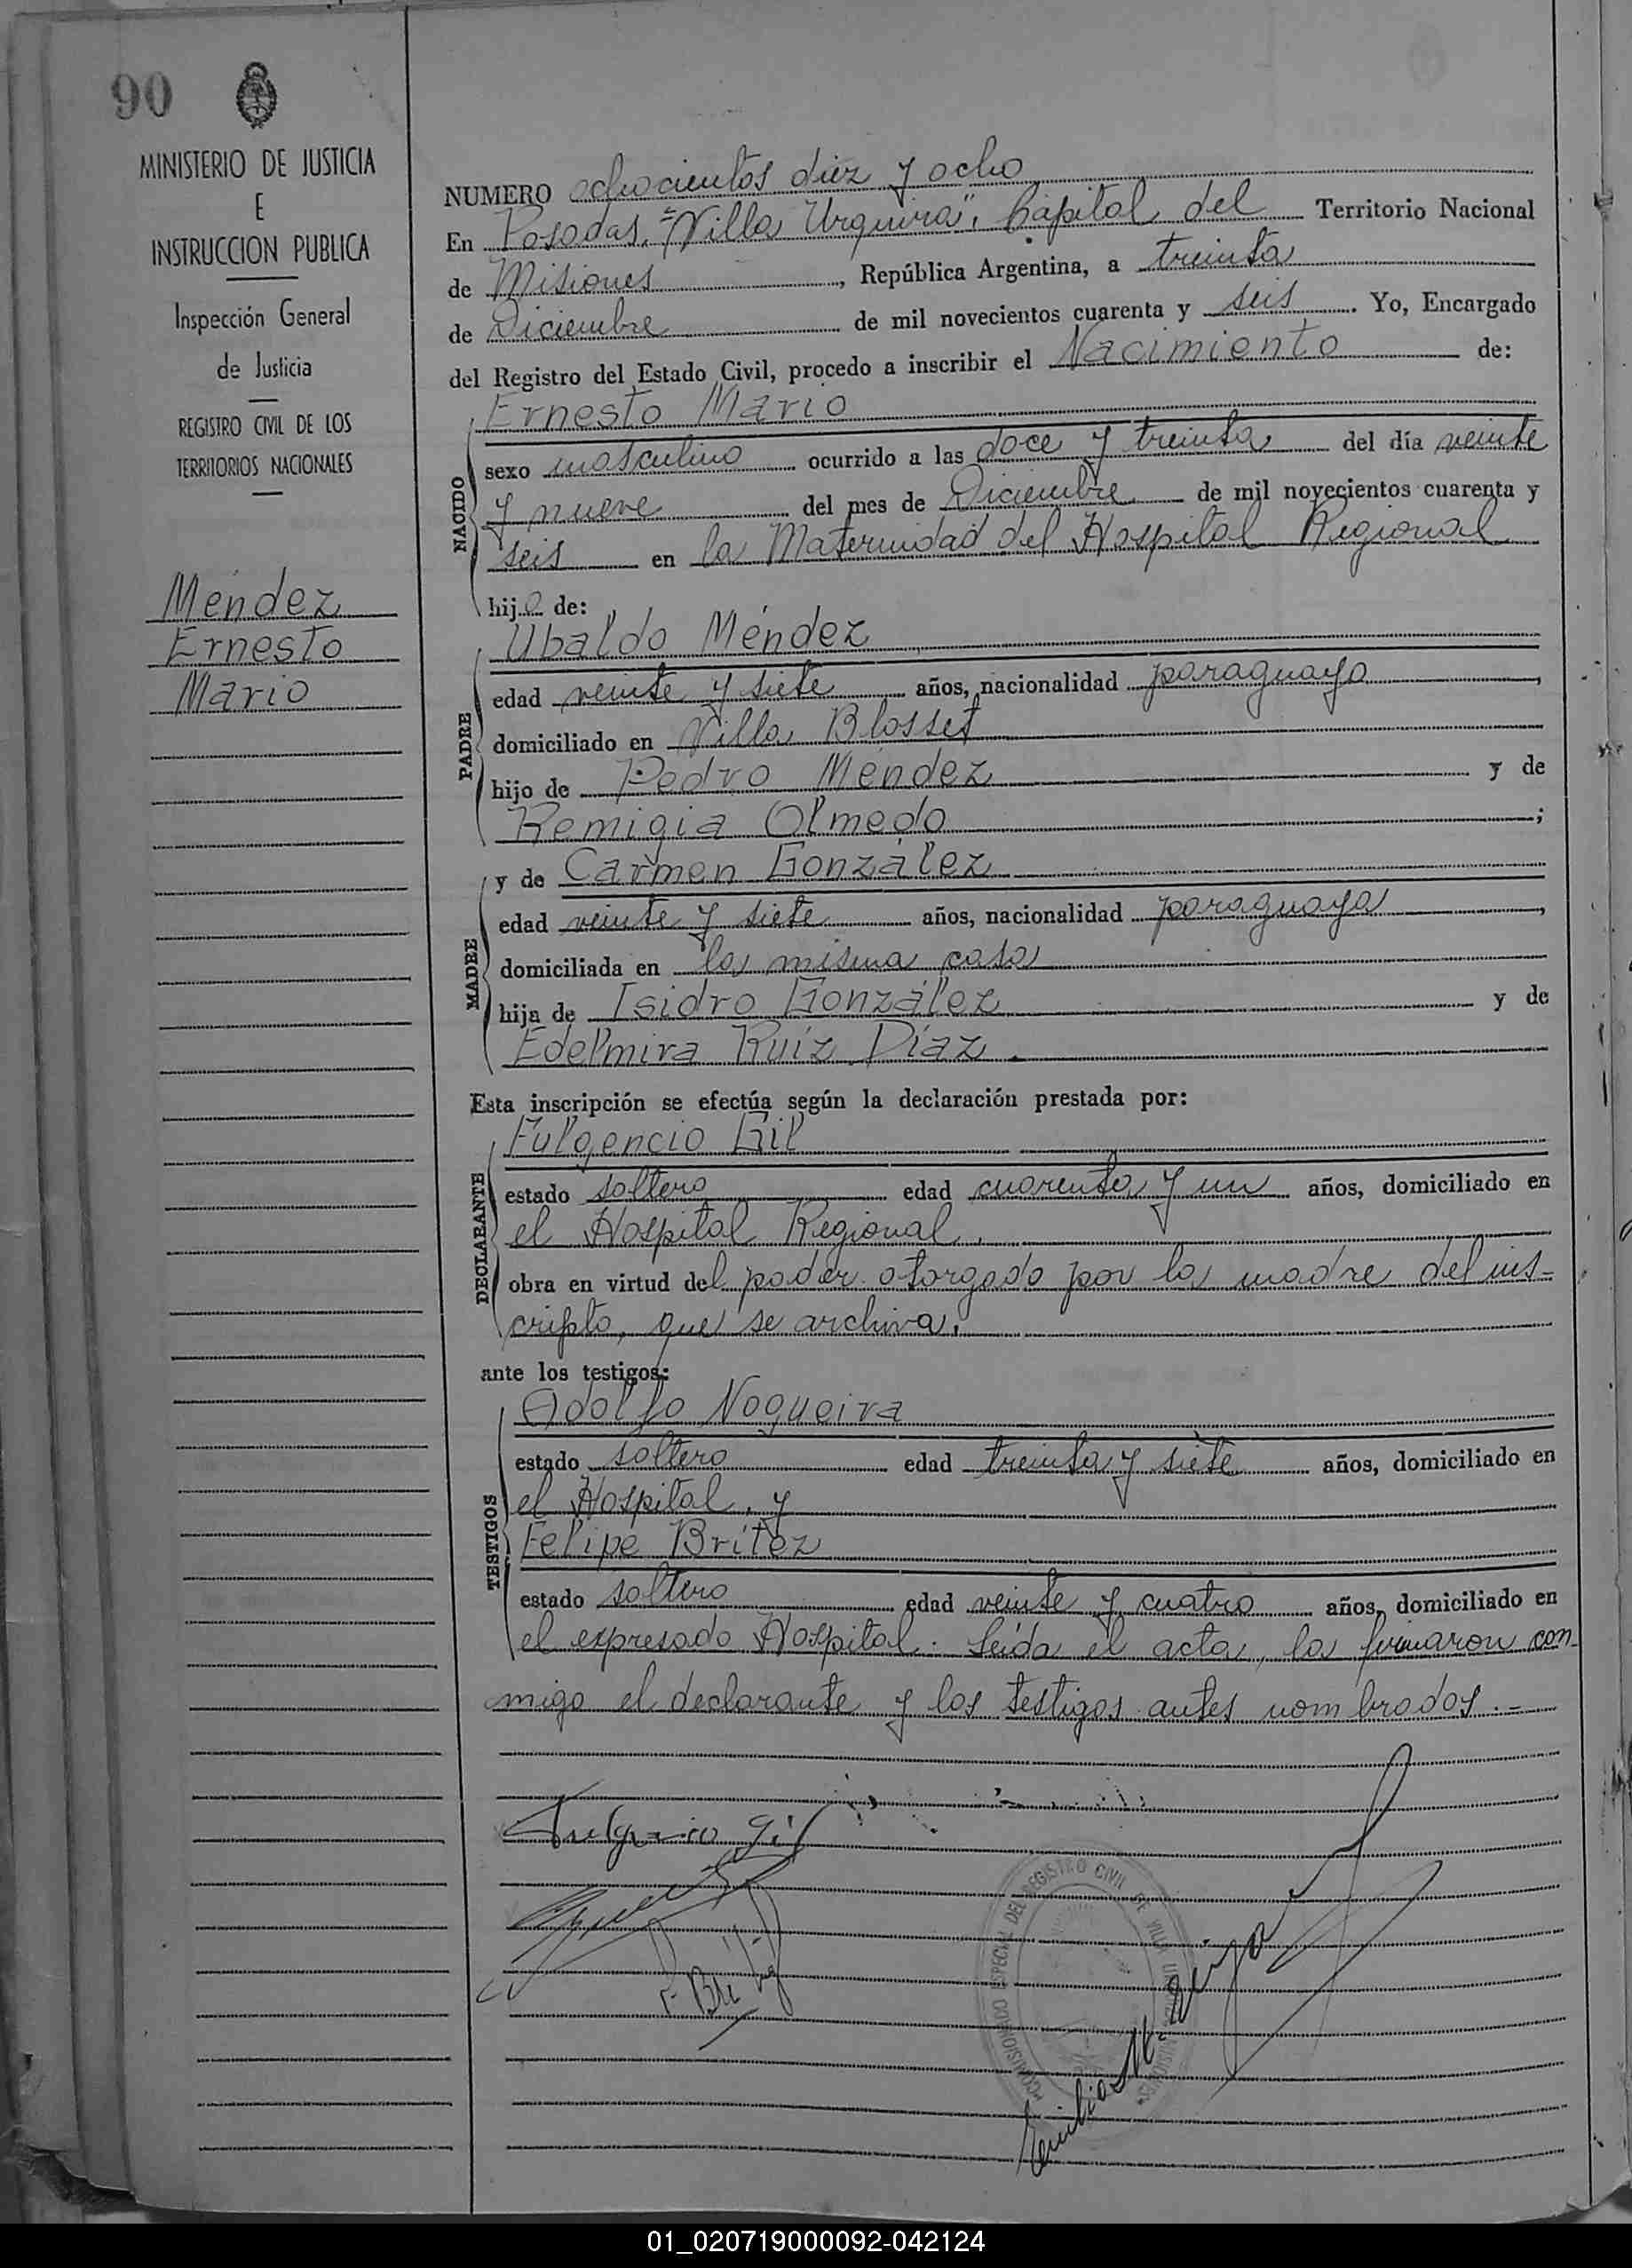 90
MINISTERIO DE JUSTICIA
E
INSTRUCCION PUBLICA
Inspección General
de Justicia
REGISTRO CIVIL DE LOS
TERRITORIOS NACIONALES
Méndez
Ernesto
Mario
NUMERO ochocientos diez y ocho
En Posadas, "Villa Urquiza", Capital del Territorio Nacional
de Misiones, República Argentina, a treinta
de Diciembre de mil novecientos cuarenta y seis. Yo, Encargado
del Registro del Estado Civil, procedo a inscribir el Nacimiento de:
NACIDO
Ernesto Mario
sexo masculino ocurrido a las doce y treinta del día veinte
y nueve del mes de Diciembre de mil novecientos cuarenta y
seis en la Maternidad del Hospital Regional
hijo de:
PADRE
Ubaldo Méndez
edad veinte y siete años, nacionalidad paraguaya,
domiciliado en Villa Blosset
hijo de Pedro Méndez y de
Remigia Olmedo;
MADRE
y de Carmen González
edad veinte y siete años, nacionalidad paraguaya,
domiciliada en la misma casa
hija de Isidro González y de
Edelmira Ruíz Díaz.
Esta inscripción se efectúa según la declaración prestada por:
DECLARANTE
Fulgencio Gil
estado soltero edad cuarenta y un años, domiciliado en
el Hospital Regional.
obra en virtud del poder otorgado por la madre del ins-
cripto, que se archiva.
ante los testigos:
TESTIGOS
Adolfo Nogueira
estado soltero edad treinta y siete años, domiciliado en
el Hospital, y
Felipe Brítez
estado soltero edad veinte y cuatro años, domiciliado en
el expresado Hospital. Leída el acta, la firmaron con-
migo el declarante y los testigos antes nombrados.=
Fulgencio Gil
COMISIONADO ESPECIAL DEL REGISTRO CIVIL DE VILLA
01_020719000092-042124